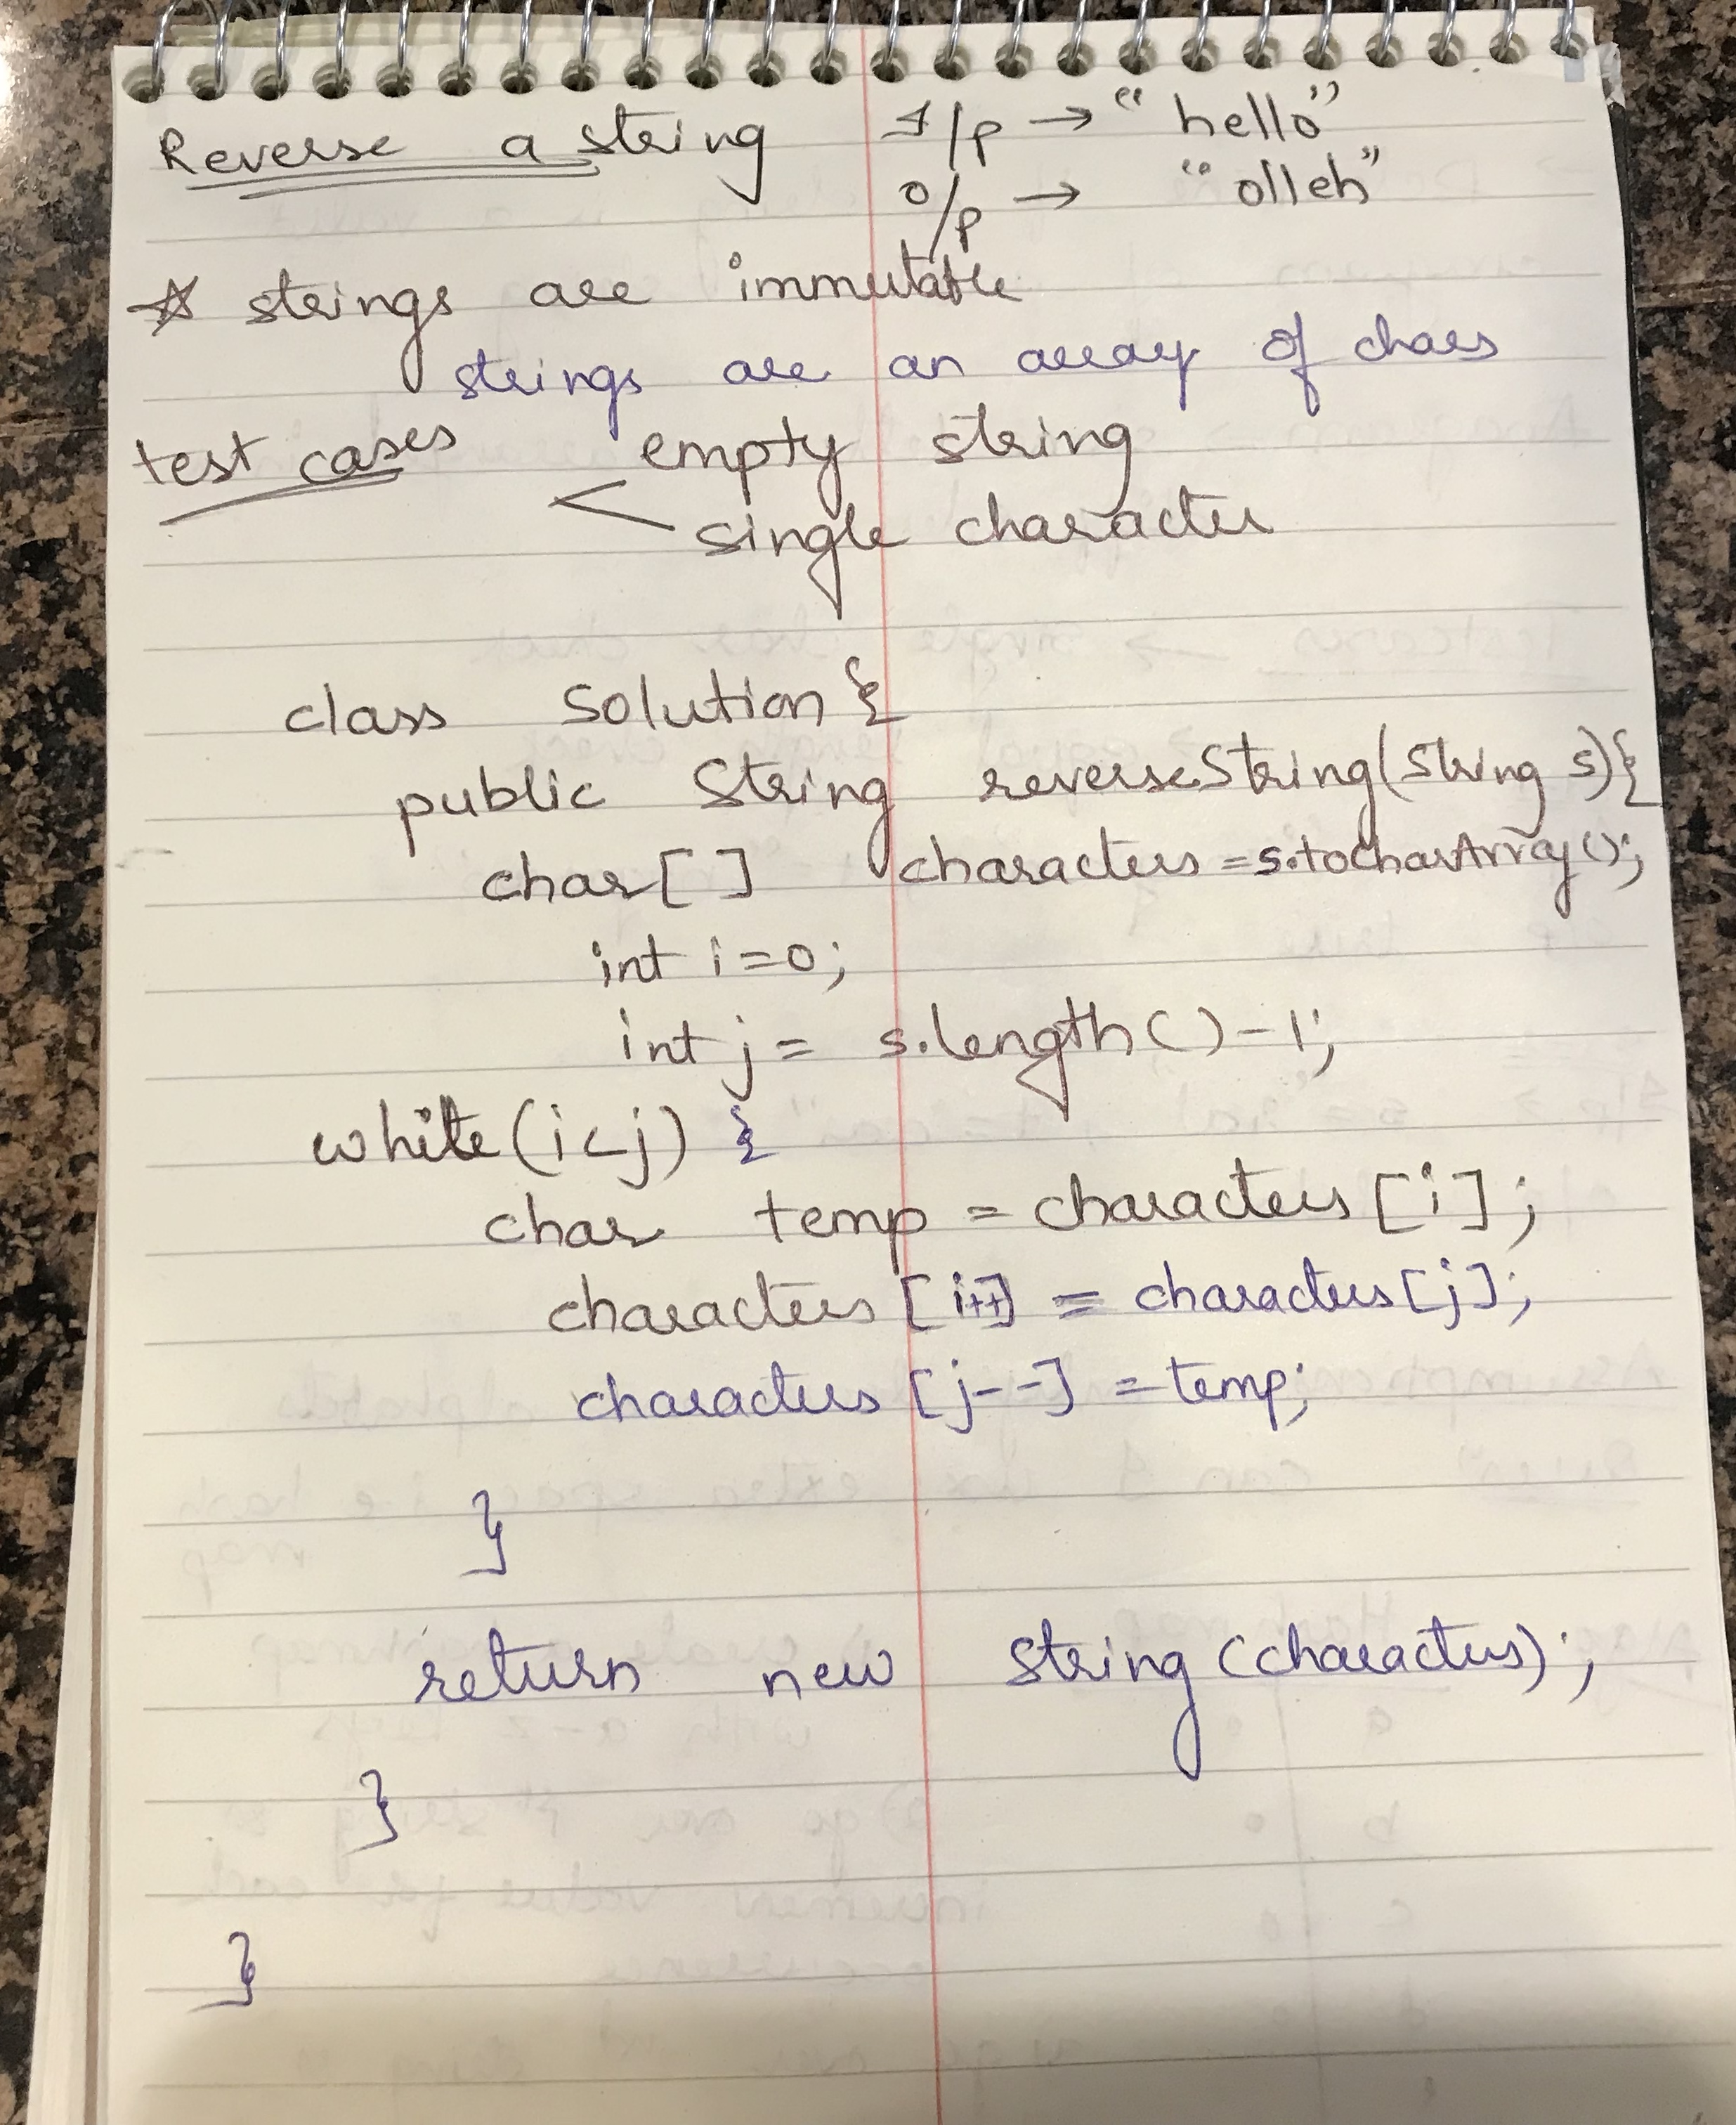 Reverse a string I/p → "hello"
o/p → "olleh"
☆ strings are immutable
strings are an array of chars
test cases < empty string
single character
class Solution {
public String reverseString(String s){
char[] characters = s.toCharArray();
int i=0;
int j= s.length()-1;
while(i<j) {
char temp = characters[i];
characters[i++] = characters[j];
characters[j--] = temp;
}
return new String(characters);
}
}